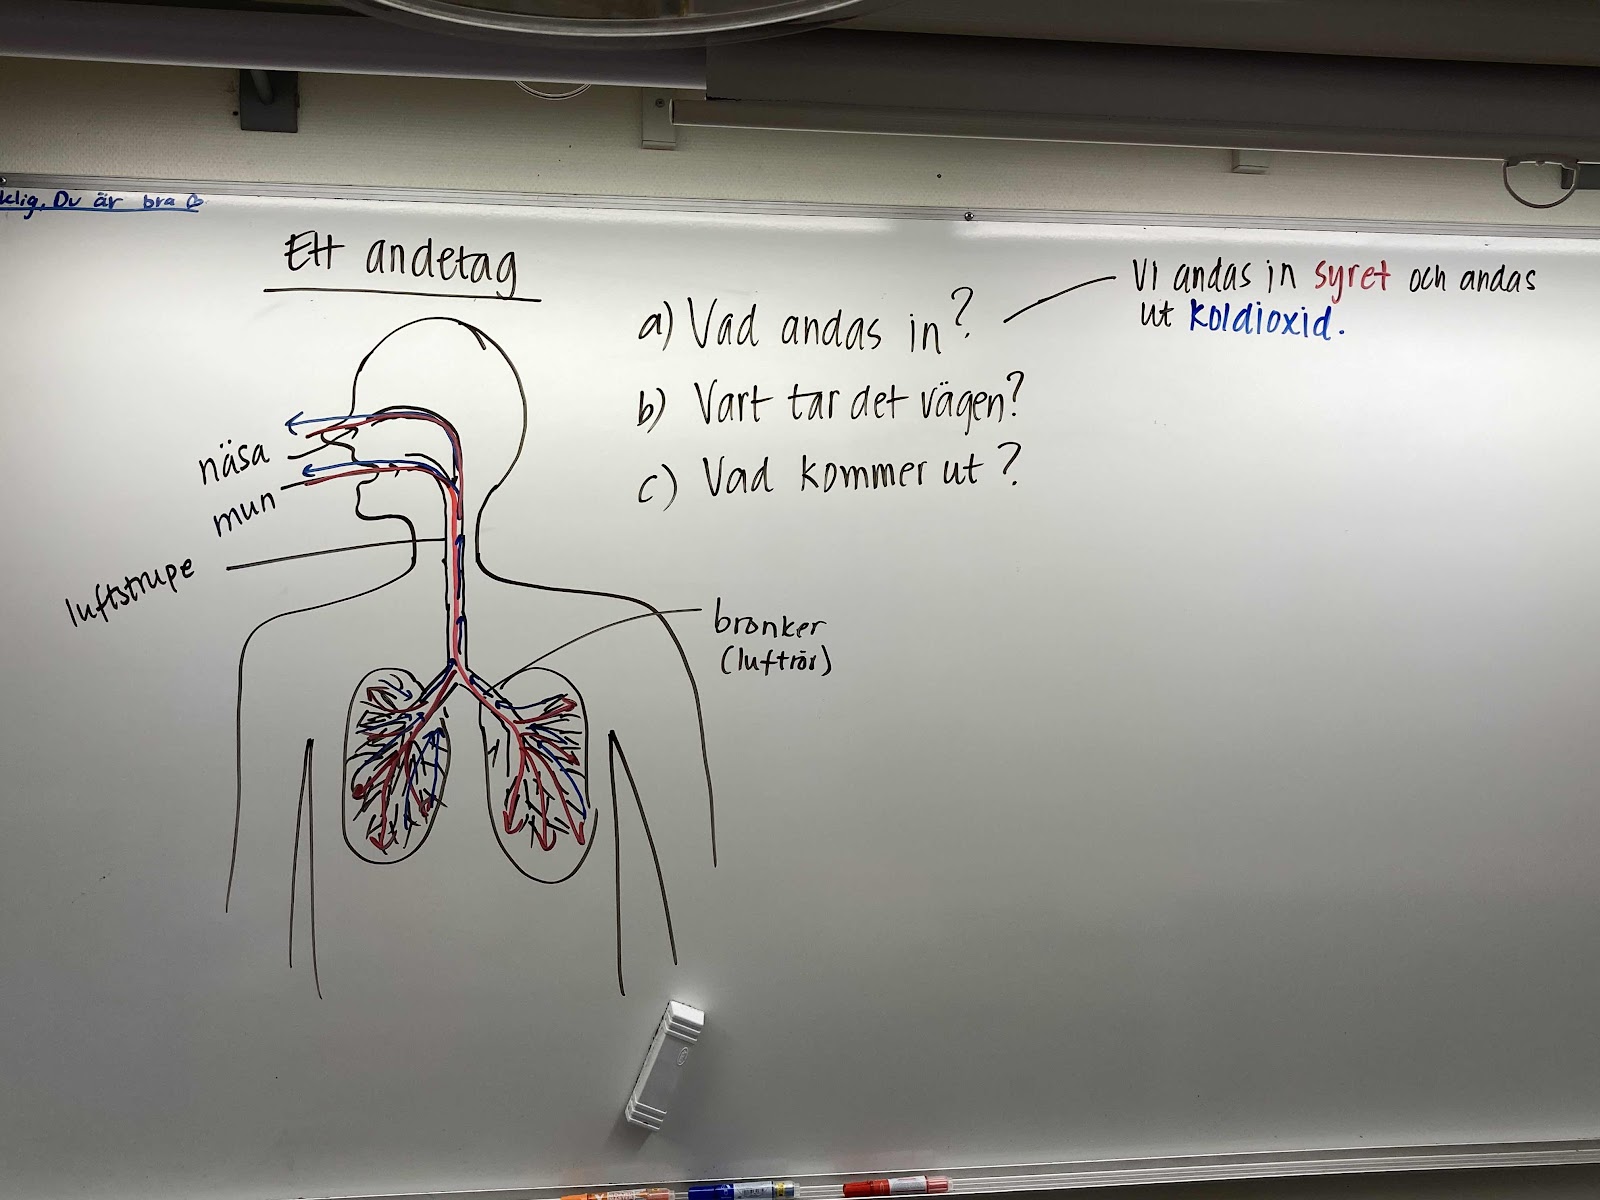 klig. Du är bra
Ett andetag
a) Vad andas in?
b) Vart tar det vägen?
c) Vad kommer ut?
Vi andas in syret och andas
ut koldioxid.
näsa
mun
luftstrupe
bronker
(luftrör)